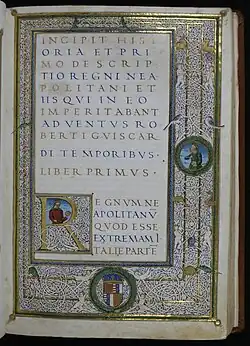 INCIPIT HIST
ORIA ET PRI
MO DESCRIP
TIO REGNI NEA
POLITANI ET
IIS QVI IN EO
IMPERITABANT
ADVENTVS RO
BERTI GVISCAR
DI TEMPORIBVS·
LIBER PRIMVS·
REGNVM NE
APOLITANV̄
QVOD ESSE
EXTREMAM I
TALIE PARTĒ